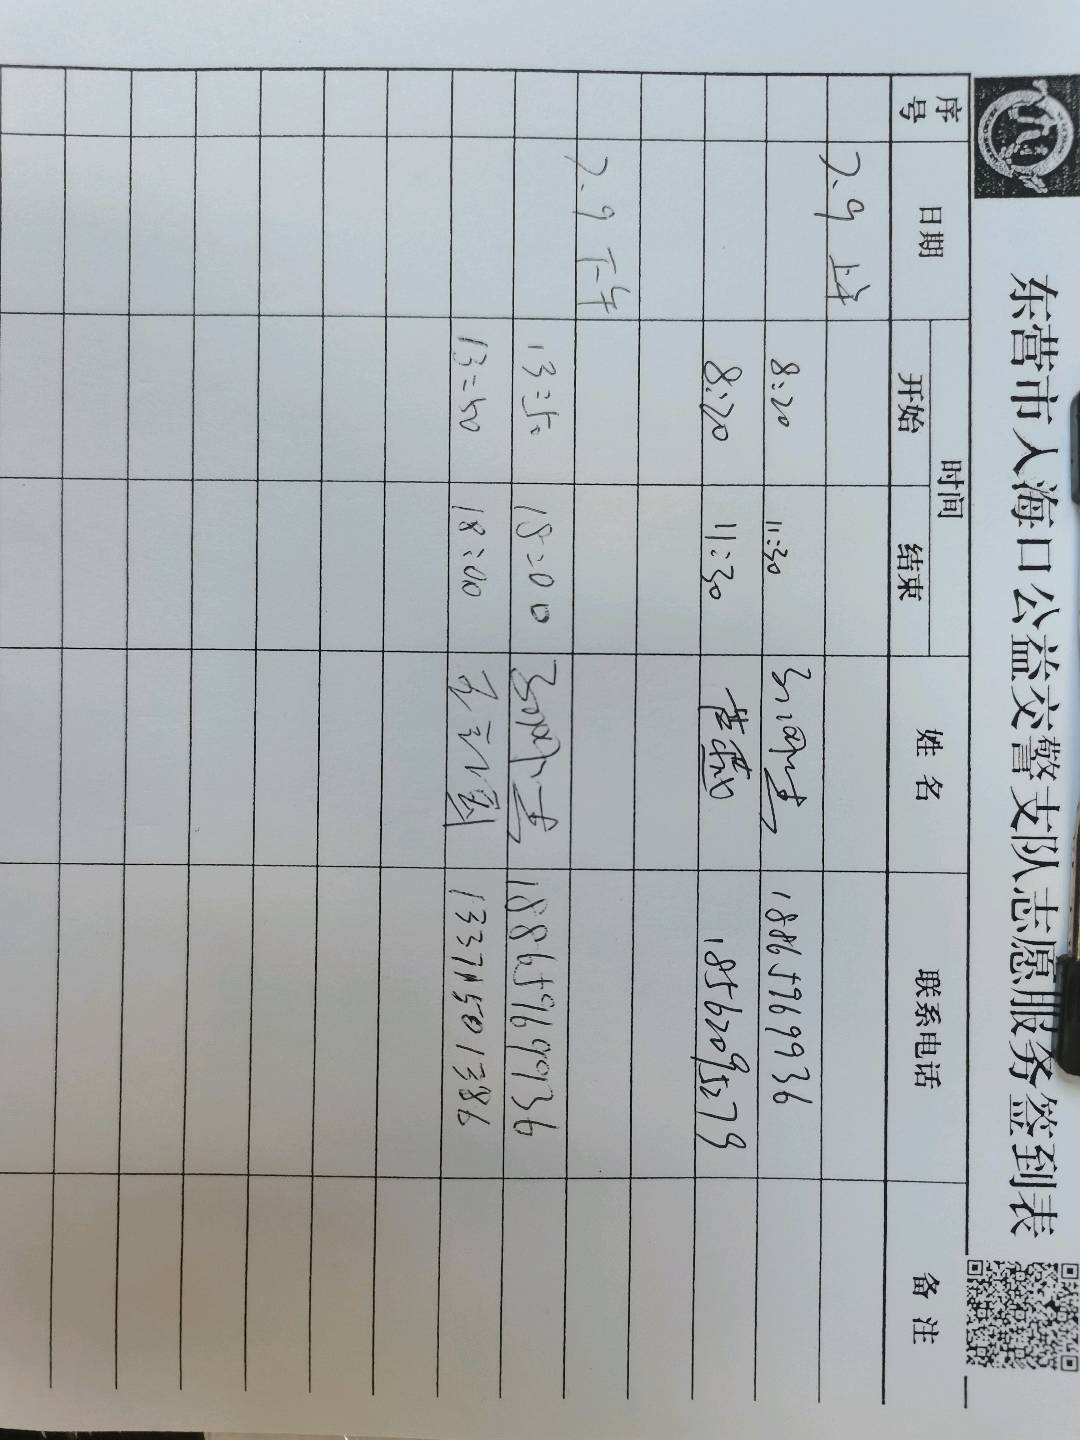 东营市人海口公益交警支队志愿服务签到表
序号 日期 时间 姓名 联系电话 备注
开始 结束
7.9 上午
8:20 11:30 18865969936
8:20 11:30 18562095279
7.9 下午
13:50 18:00 18865969936
13:50 18:00